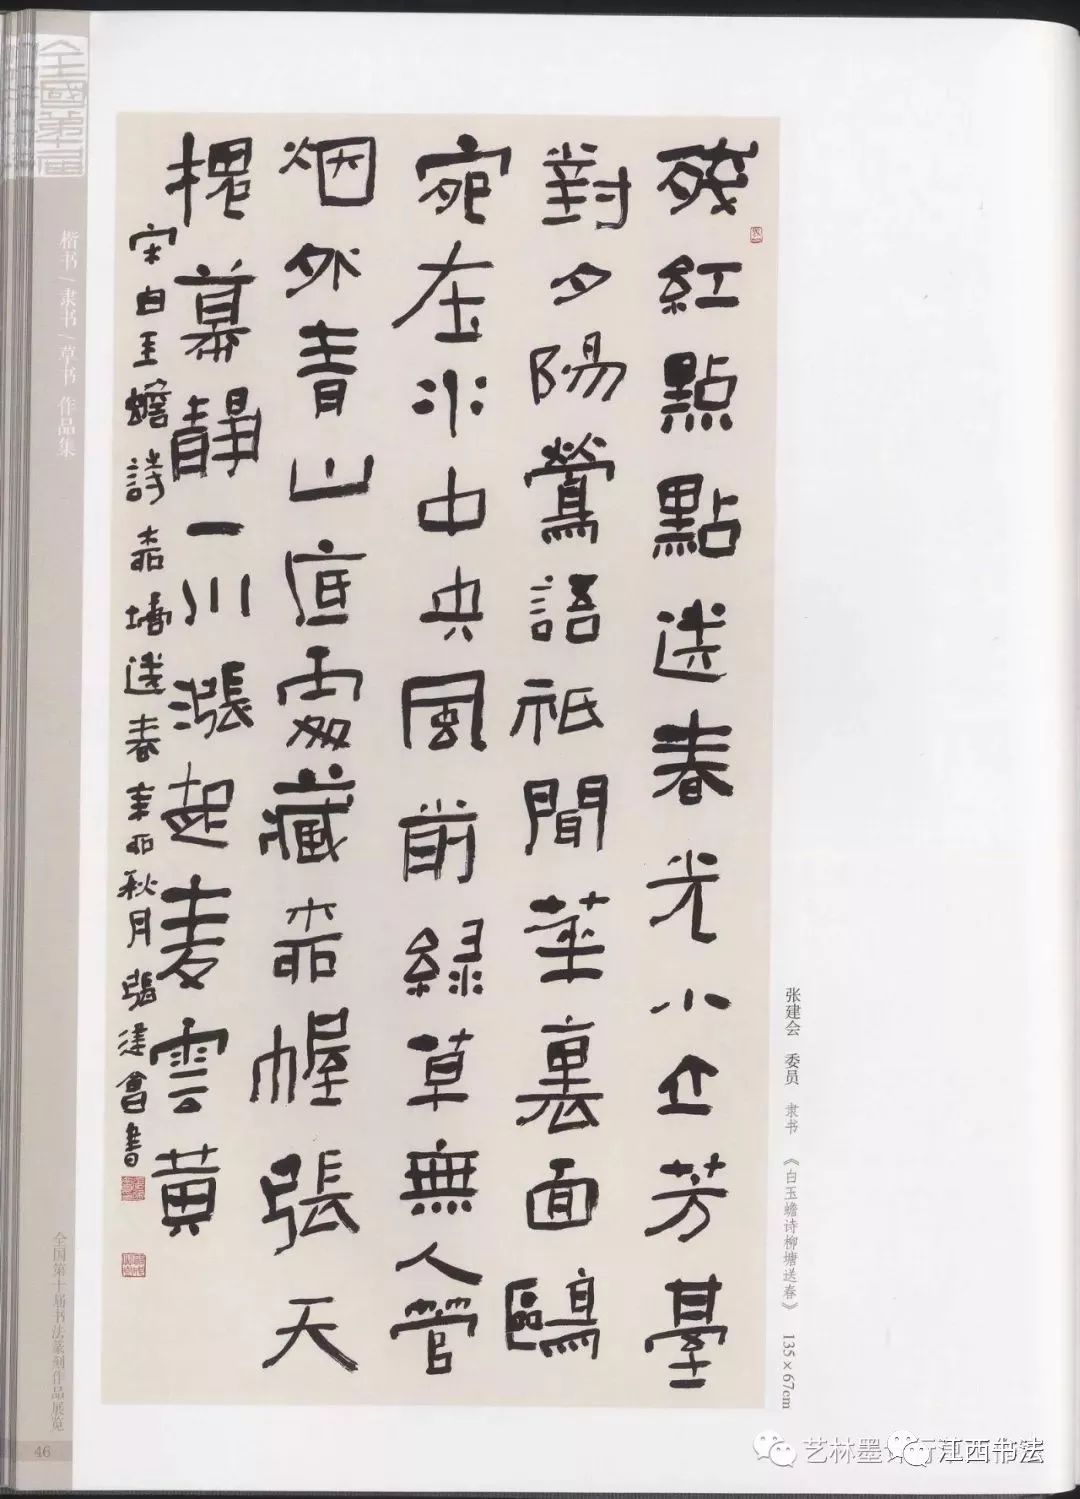 殘紅點點送春光小立芳臺
對夕陽鶯語祇聞葉裏面鷗
宛在水中央風前綠草無人管
烟外青山底處藏桺幄張天
幕靜一川漲起麥雲黃
宋白玉蟾詩桺塘送春辛丣秋月張建會書
张建会 委员 隶书 《白玉蟾诗柳塘送春》 135×67cm
全國第十屆
楷书/隶书/草书 作品集
全国第十届书法篆刻作品展览
46
艺林墨
江西书法